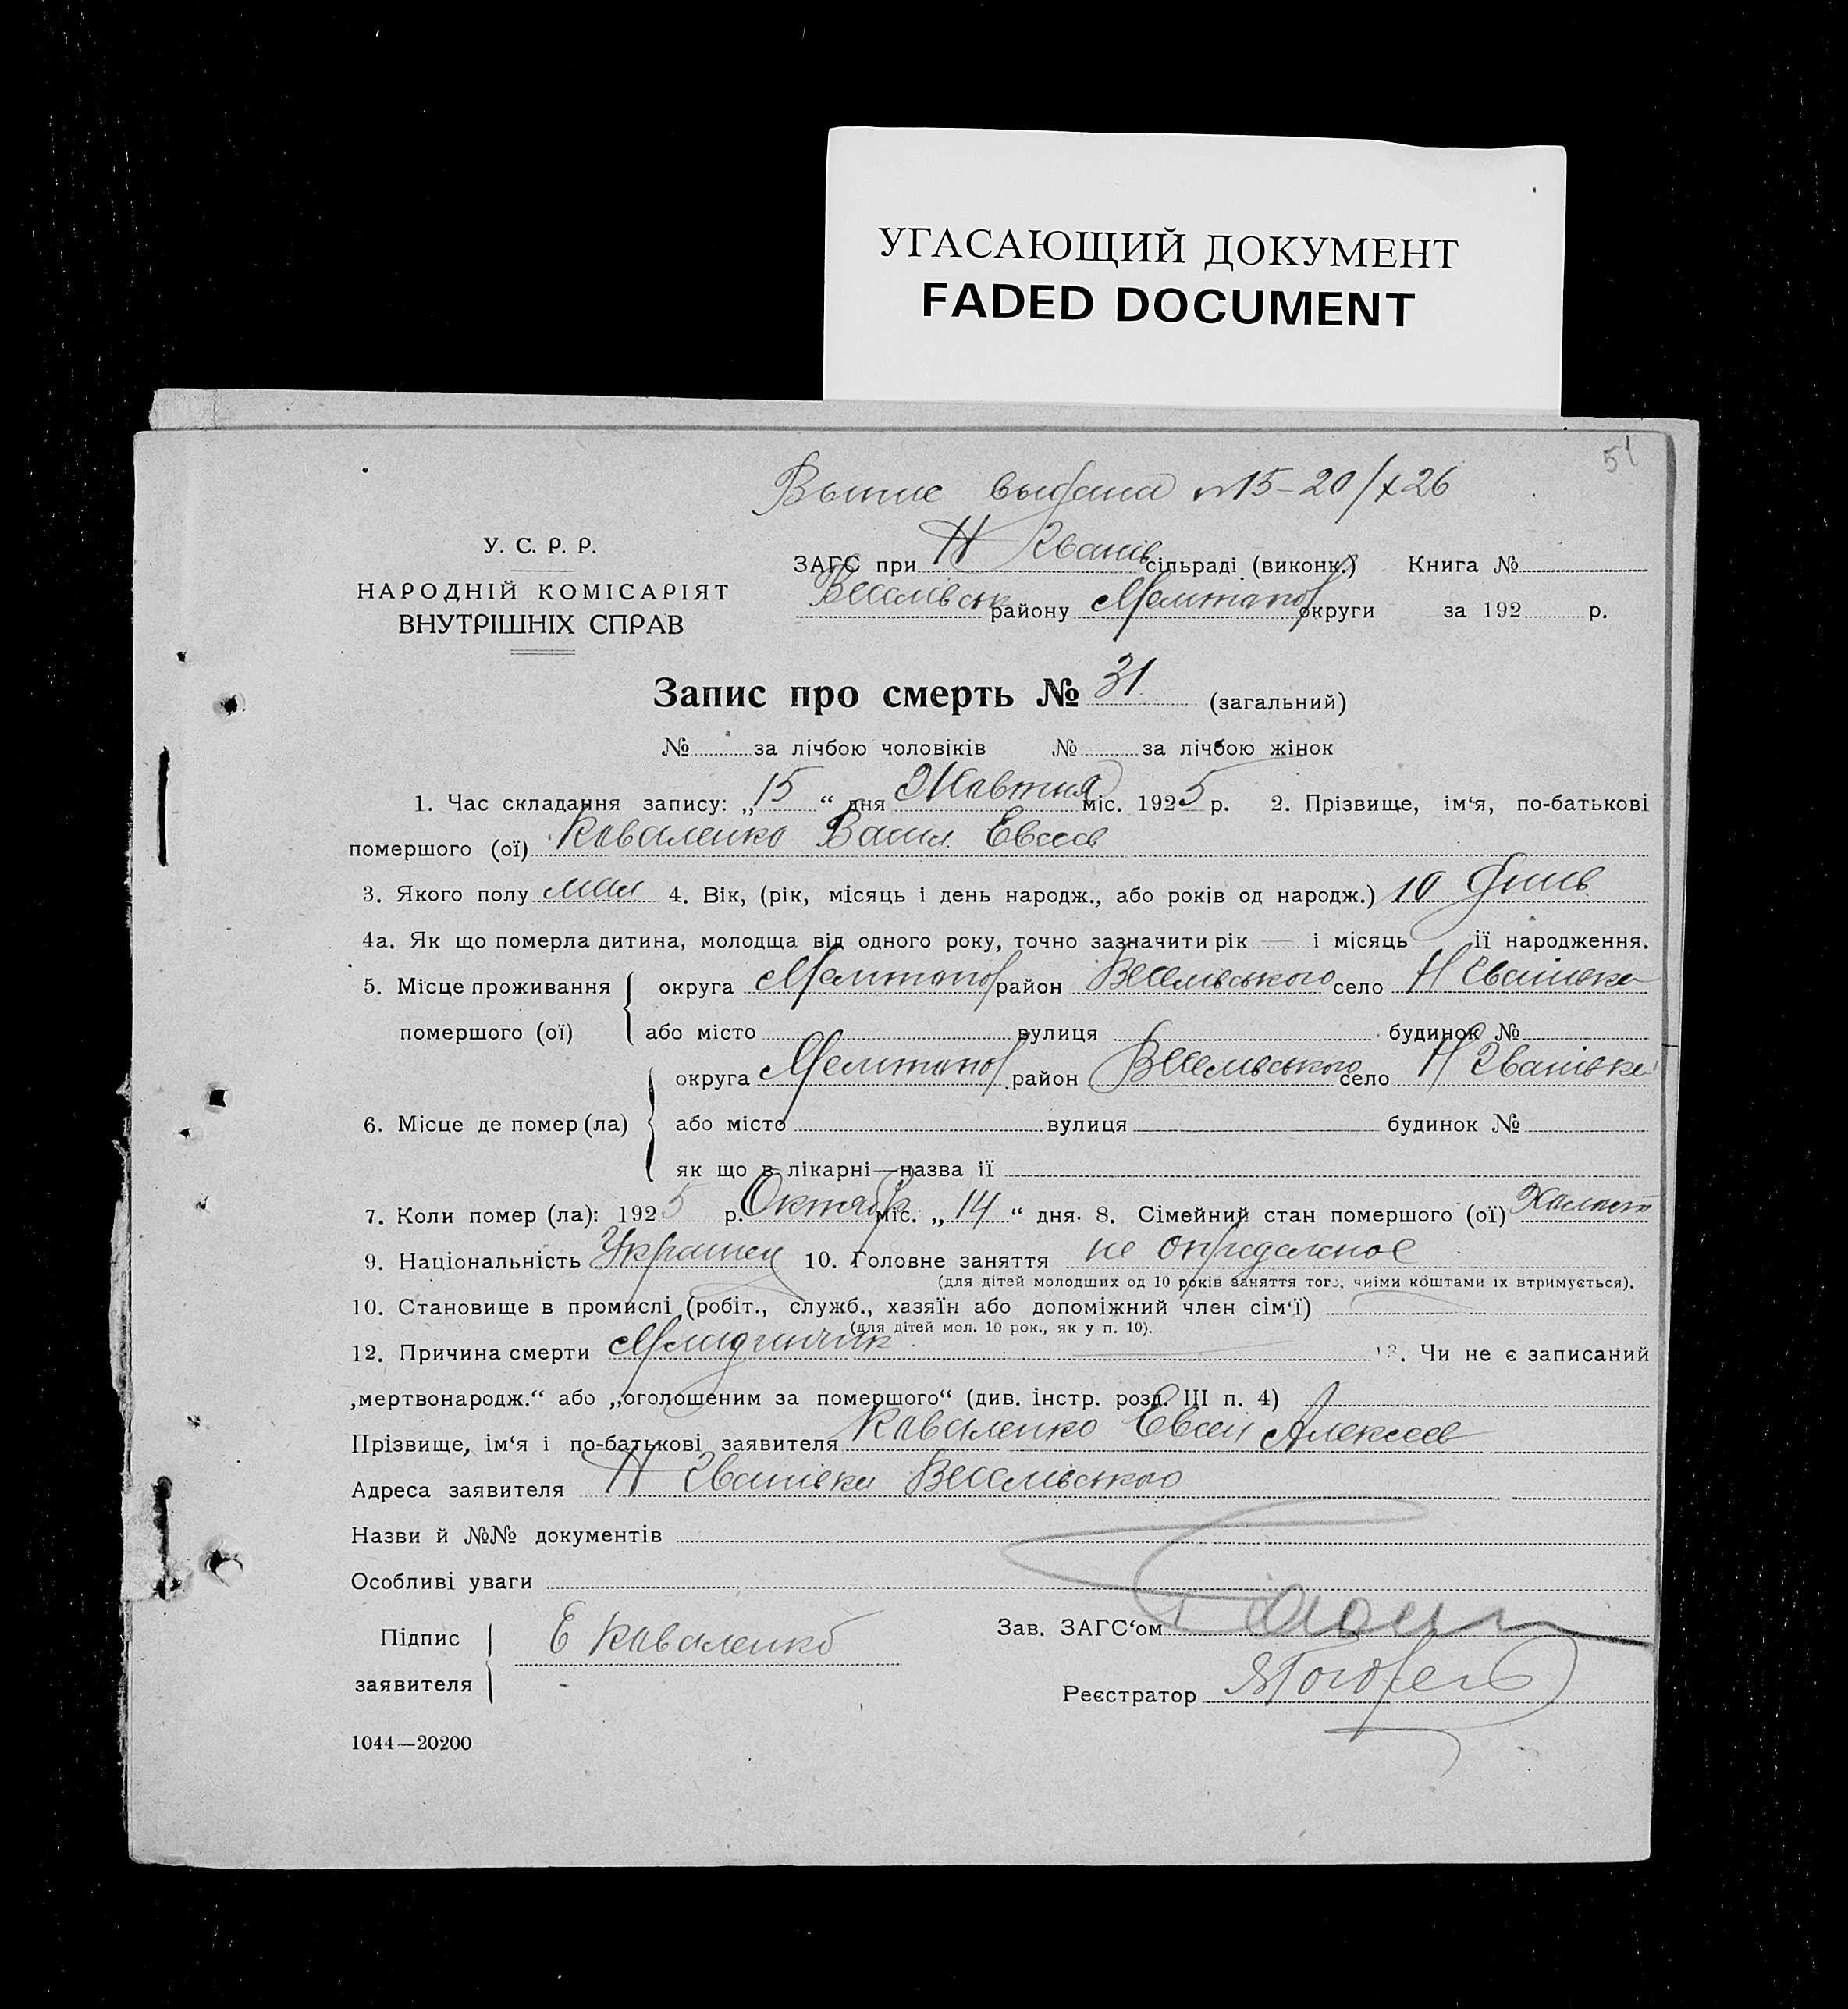 УГАСАЮЩИЙ ДОКУМЕНТ
FADED DOCUMENT
51
Выпис выдана №15-20/X 26
У. С. Р. Р.
НАРОДНІЙ КОМІСАРІЯТ
ВНУТРІШНІХ СПРАВ
ЗАГС при Н сільраді (виконк.) Книга №
Веселівськ району Мелитопол округи за 192 р.
Запис про смерть № 31 (загальний)
№ за лічбою чоловіків № за лічбою жінок
1. Час складання запису: „15“ дня Жовтня міс. 1925 р. 2. Прізвище, ім‘я, по-батькові
помершого (ої) Коваленко Васил Евсеев
3. Якого полу 4. Вік, (рік, місяць і день народж., або років од народж.) 10 днив
4а. Як що померла дитина, молодща від одного року, точно зазначити рік — і місяць ії народження.
5. Місце проживання помершого (ої) округа Мелитопол район Веселивського село Н Званівка
або місто вулиця будинок №
6. Місце де помер (ла) округа Мелитопол район Веселивського село Н Званівка
або місто вулиця будинок №
як що в лікарні—назва ії
7. Коли помер (ла): 1925 р. Октября міс. „14“ дня. 8. Сімейний стан помершого (ої) Холост
9. Національність Украинец 10. Головне заняття не определеное
(для дітей молодших од 10 років заняття того, чиїми коштами їх втримується).
10. Становище в промислі (робіт., служб., хазяїн або допоміжний член сім‘ї)
(для дітей мол. 10 рок., як у п. 10).
12. Причина смерти Младинчик 13. Чи не є записаний
„мертвонародж.“ або „оголошеним за помершого“ (див. інстр. розд. III п. 4)
Прізвище, ім‘я і по-батькові заявителя Коваленко Евсей Алексеев
Адреса заявителя Н Званівка Веселивського
Назви й №№ документів
Особливі уваги
Підпис заявителя Е Коваленко
Зав. ЗАГС‘ом
Реєстратор
1044—20200